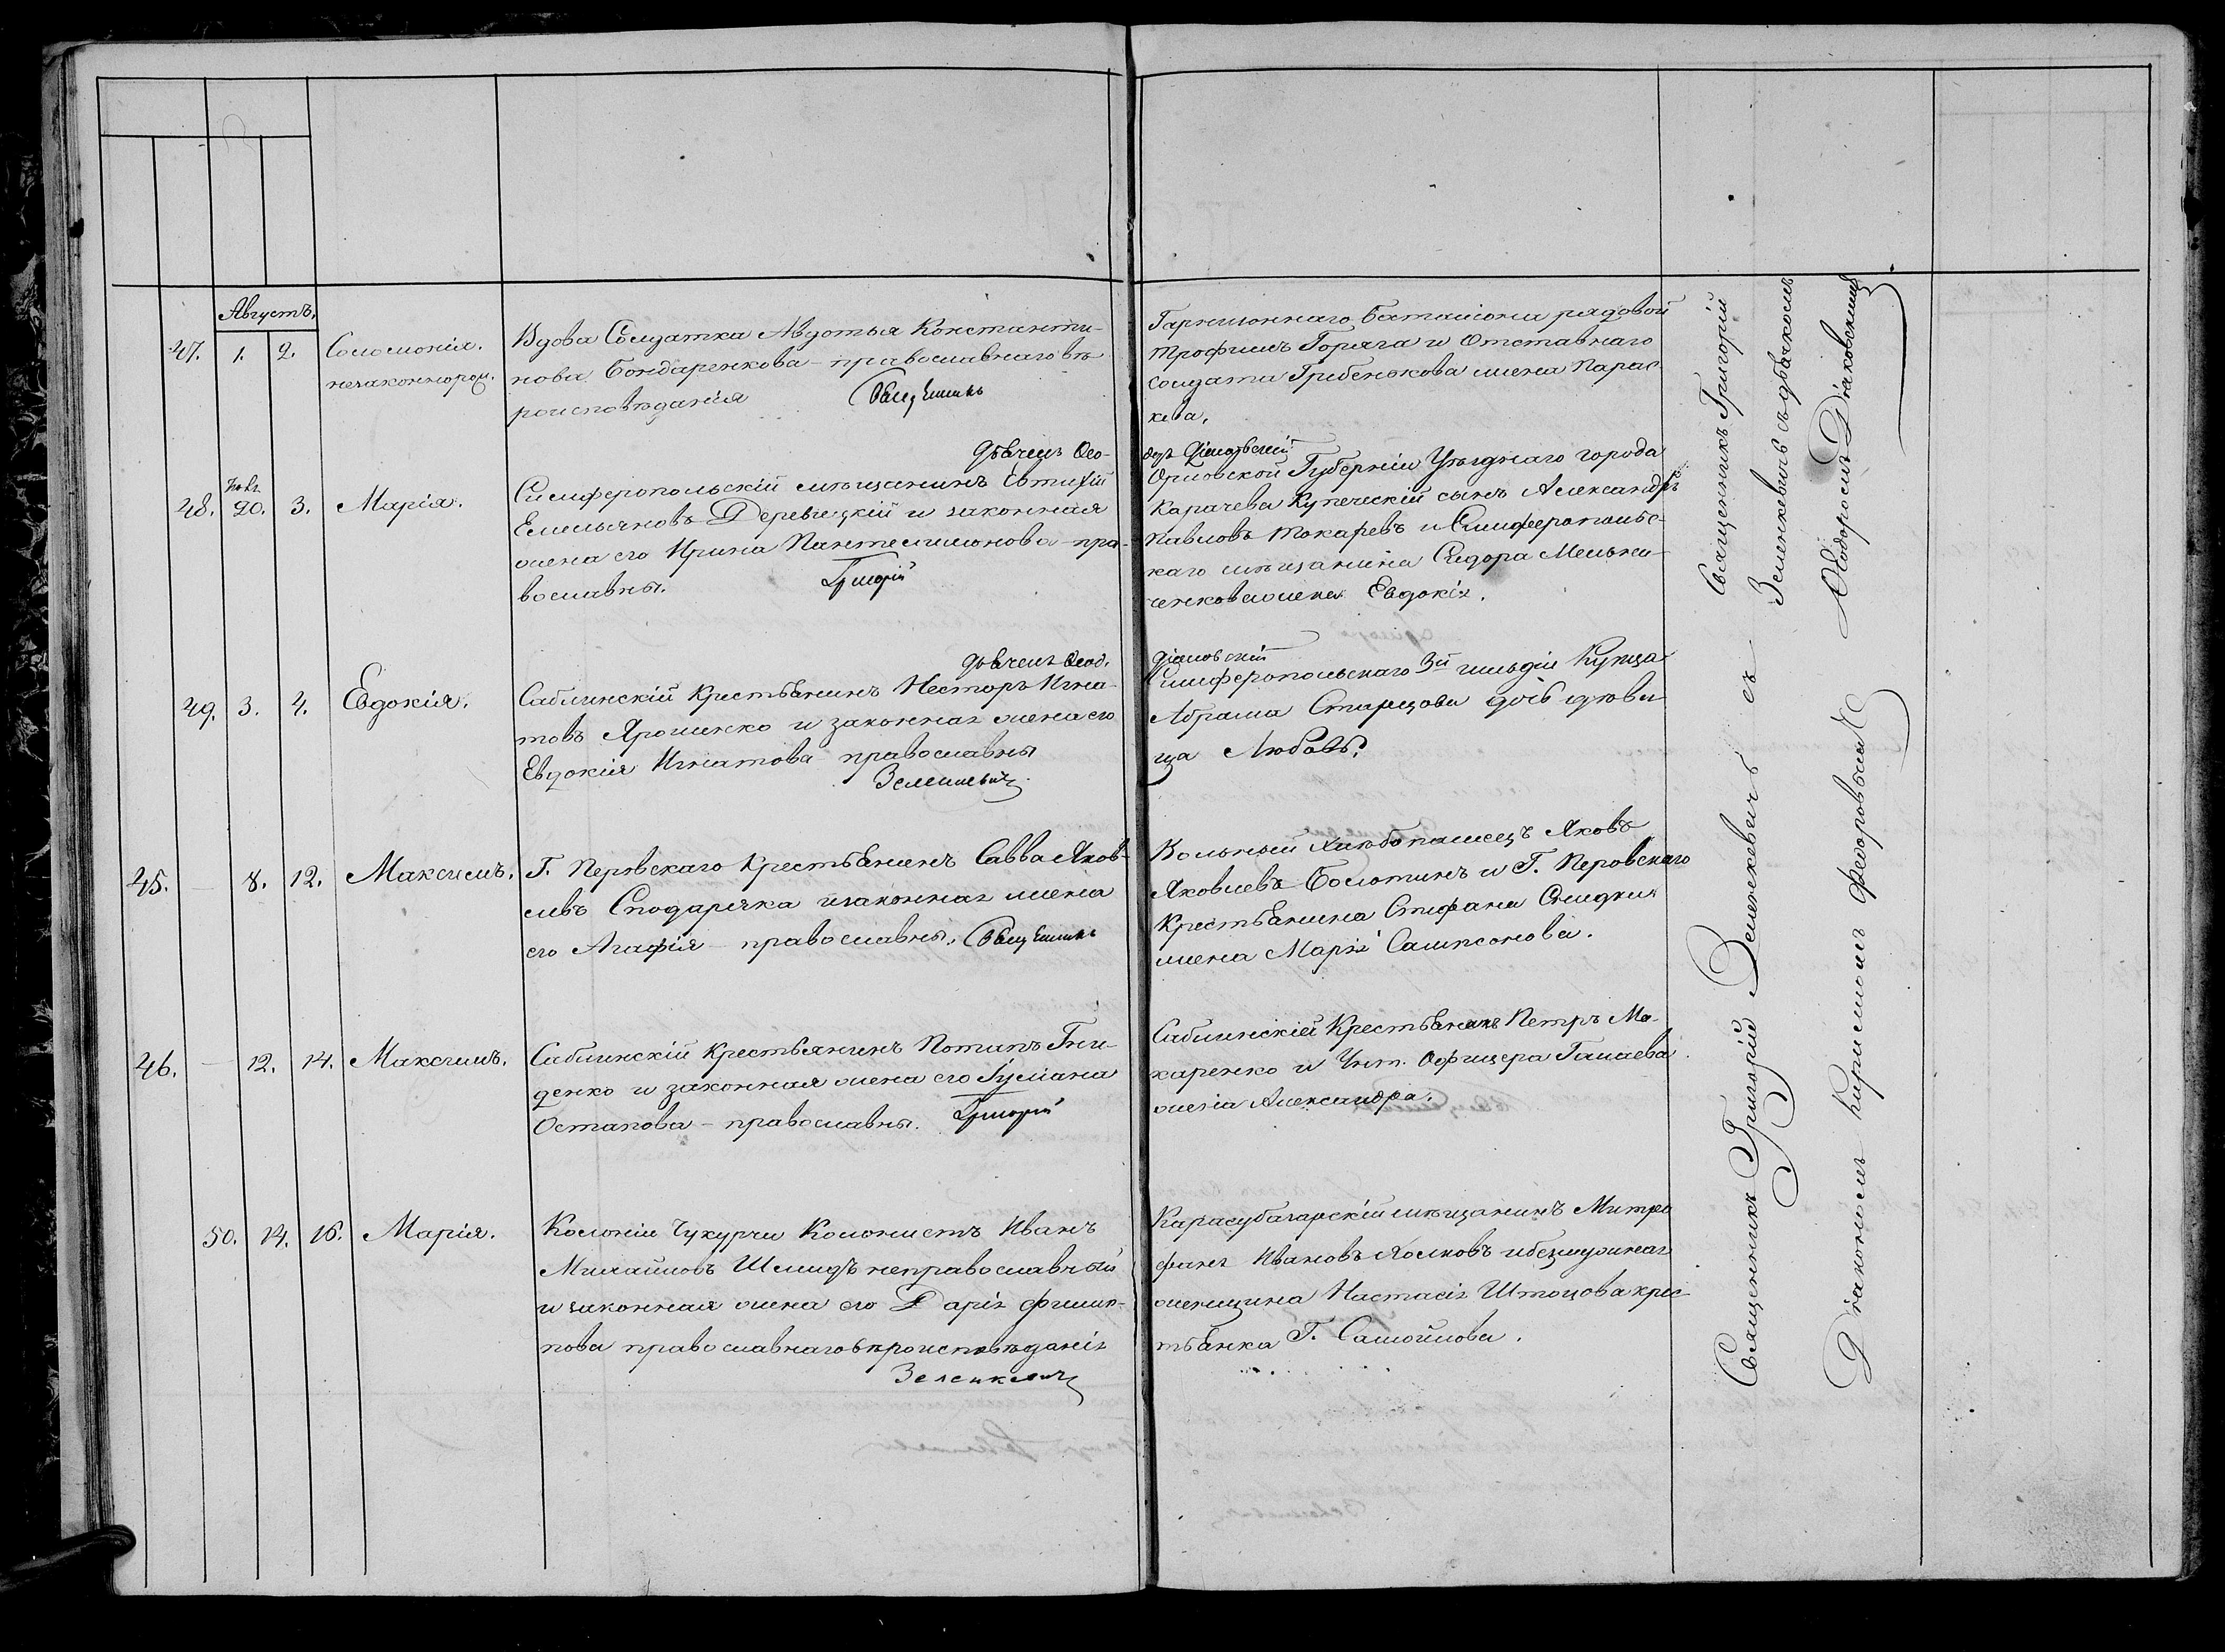 Августъ.
47. 1. 2. Соломонія.
незаконнорож.
Вдова Солдатка Авдотья Константи-
нова Бондаренкова - православнаго вѣ-
роисповѣданія Священникъ
Гарнизоннаго Баталіона рядовой
Трофимъ Горяга и Отставнаго
солдата Грибенюкова жена Парас-
кева.
48. 20. 3. Марія.
Симферопольскій мѣщанинъ Евтихій
Емельяновъ Деревицкій и законная
жена его Ирина Пантелимонова - пра-
вославны. Григорій
Орловской Губерніи Уѣзднаго города
Карачева Купеческій сынъ Александръ
Павловъ Токаревъ и Симферопольс-
каго мѣщанина Сидора Мельни-
ченкова жена Евдокія.
49. 3. 4. Евдокія.
Саблинскій крестьянинъ Несторъ Игна-
товъ Ярошенко и законная жена его
Евдокія Игнатова православны
Зеленкевичъ
Симферопольскаго 3й гильдіи Купца
Абрама Старцова дочь дѣви-
ца Любовь.
45. - 8. 12. Максимъ.
Г. Перовскаго Крестьянинъ Савва Яков-
левъ Сподарячка и законная жена
его Агафія - православны. Священникъ
Вольный Хлѣбопашецъ Яковъ
Яковлевъ Болотинъ и Г. Перовскаго
Крестьянина Стефана Снидкия
жена Марія Сампсонова.
46. - 12. 14. Максимъ.
Саблинскій Крестьянинъ Потапъ Гни-
денко и законная жена его Іуліана
Остапова - православны. Григорій
Саблинскій Крестьянинъ Петръ Ма-
каренко и Унт. Офицера Галаева
жена Александра.
50. 14. 16. Марія.
Колоніи Чукурчи Колонистъ Иванъ
Михайловъ Шмидъ неправославный
и законная жена его Дарія Филип-
пова православнаго вѣроисповѣданія
Зеленкевичъ
Карасубазарскій мѣщанинъ Митро
фанъ Ивановъ Волковъ и безмужная
женщина Настасія Штоцова крес-
тьянка Г. Самойлова.
Священникъ Григорій Зеленкевичъ съ
Діакономъ Кирилломъ Федоровымъ
Священникъ Григорій
Зеленкевичъ съ дьячкомъ
Ѳеодоромъ Діяковскимъ